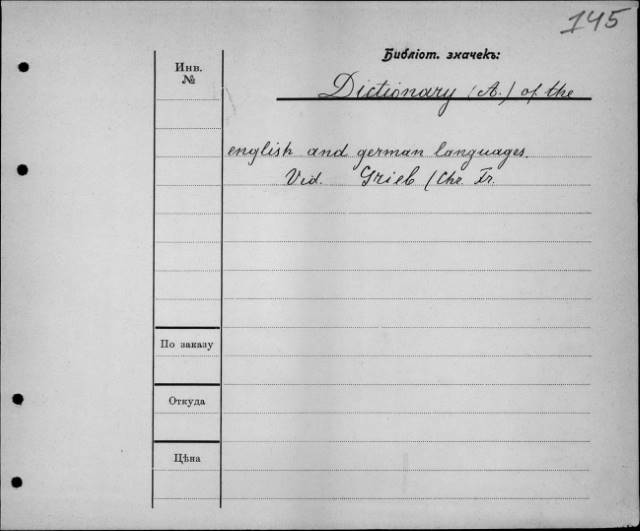 145
Библіот. значекъ:
Инв.
№
Dictionary (A.) of the
english and german languages.
Vid. Grieb (Chr. Fr.
По заказу
Откуда
Цѣна